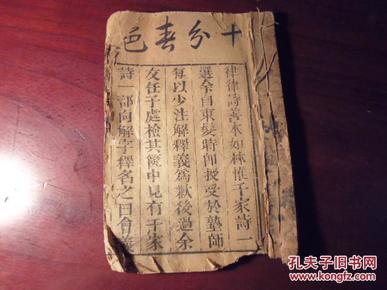 十分春色
律律詩善本如林惟千家詩一
選余自束髮時師授受於塾師
每以少注解釋義為歉後過余
友任子處檢其篋中見有千家
詩一部句解字釋名之曰
孔夫子旧书网